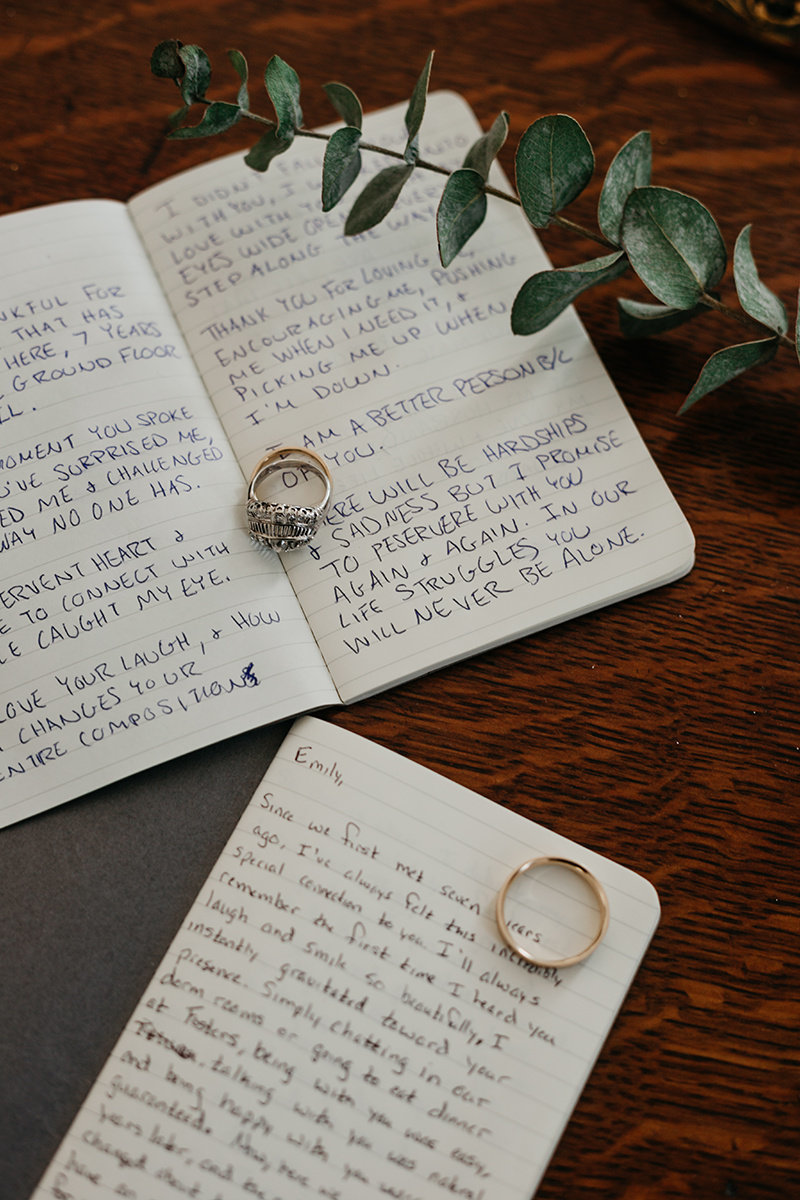 NKFUL FOR
THAT HAS
HERE, 7 YEARS
GROUND FLOOR
LL.
MOMENT YOU SPOKE
U'VE SURPRISED ME,
ED ME & CHALLENGED
WAY NO ONE HAS.
ERVENT HEART &
E TO CONNECT WITH
LE CAUGHT MY EYE.
LOVE YOUR LAUGH, & HOW
CHANGES YOUR
ENTIRE COMPOSITION
I DIDN'T
WITH YOU, I
LOVE WITH
EYES WIDE OPEN
STEP ALONG THE WAY
THANK YOU FOR LOVING
ENCOURAGING ME, PUSHING
ME WHEN I NEED IT, &
PICKING ME UP WHEN
I'M DOWN.
I AM A BETTER PERSON B/C
OF YOU.
ERE WILL BE HARDSHIPS
& SADNESS BUT I PROMISE
TO PESERVERE WITH YOU
AGAIN & AGAIN. IN OUR
LIFE STRUGGLES YOU
WILL NEVER BE ALONE.
Emily,
Since we first met seven years
ago, I've always felt this incredibly
special connection to you. I'll always
remember the first time I heard you
laugh and smile so beautifully, I
instantly gravitated toward your
presence. Simply chatting in our
dorm rooms or going to eat dinner
at Fosters, being with you was easy,
talking with you was natural
and being happy with you was
guaranteed. Now, here we
years later, and
changed about
have so